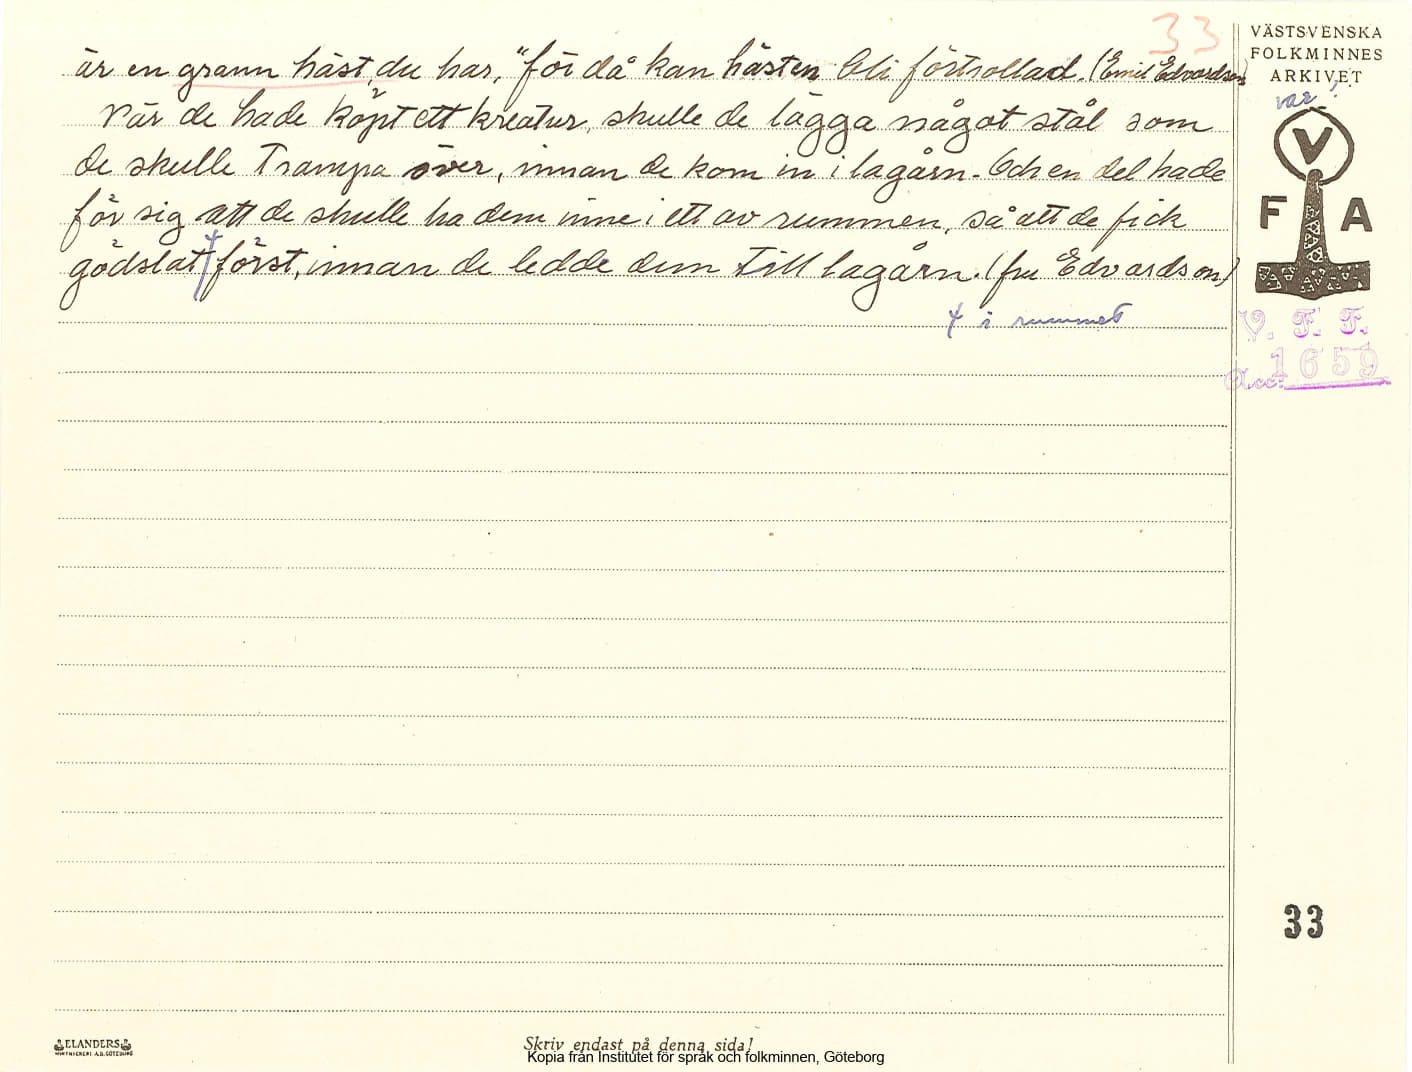 33
VÄSTSVENSKA
FOLKMINNES
ARKIVET
är en grann häst, du har," för då kan hästen bli förtrollad. (Emil Edvardson)
var?
När de hade köpt ett kreatur, skulle de lägga något stål som
de skulle trampa över, innan de kom in i lagårn. Och en del hade
för sig att de skulle ha dem inne i ett av rummen, så att de fick
gödslat ⌿ först, innan de ledde dem till lagårn. (fru Edvardson)
⌿ i rummet
V
F A
V. F. F.
Acc: 1659
33
ELANDERS
Skriv endast på denna sida!
Kopia från Institutet för språk och folkminnen, Göteborg